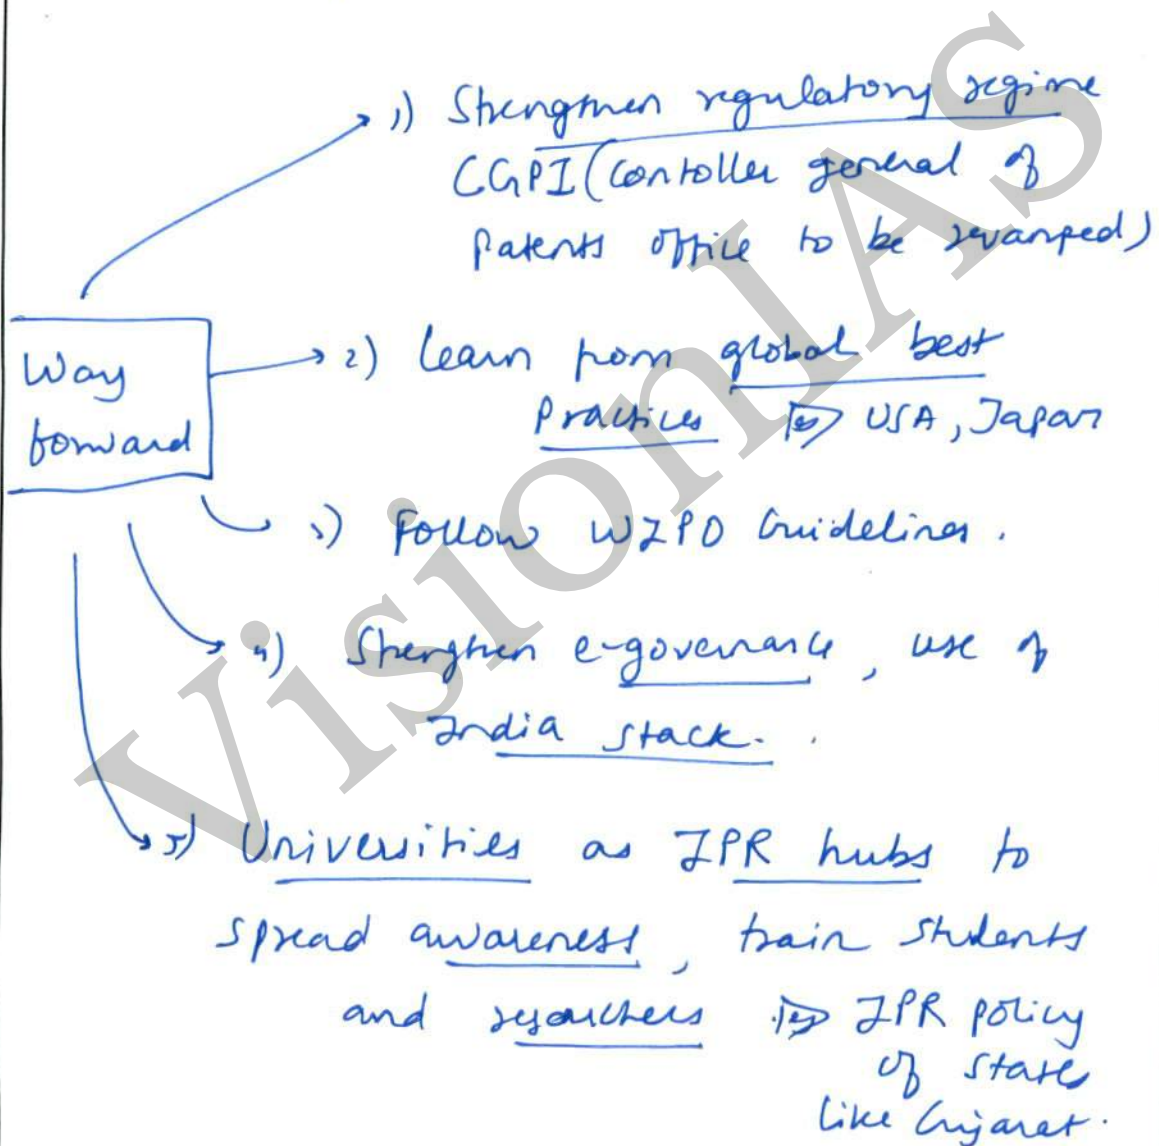 1) Strengthen regulatory regime
CGPI (Contoller general of
Patents office to be revamped)
Way
forward
2) Learn from global best
Practices eg USA, Japan
3) Follow WIPO Guidelines.
4) Strengthen e-governance, use of
India stack.
5) Universities as IPR hubs to
spread awareness, train students
and researchers eg IPR policy
of states
like Gujarat.
VisionIAS